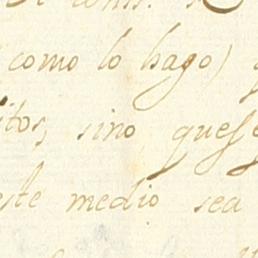 como lo hago)
itos, sino que se
este medio sea